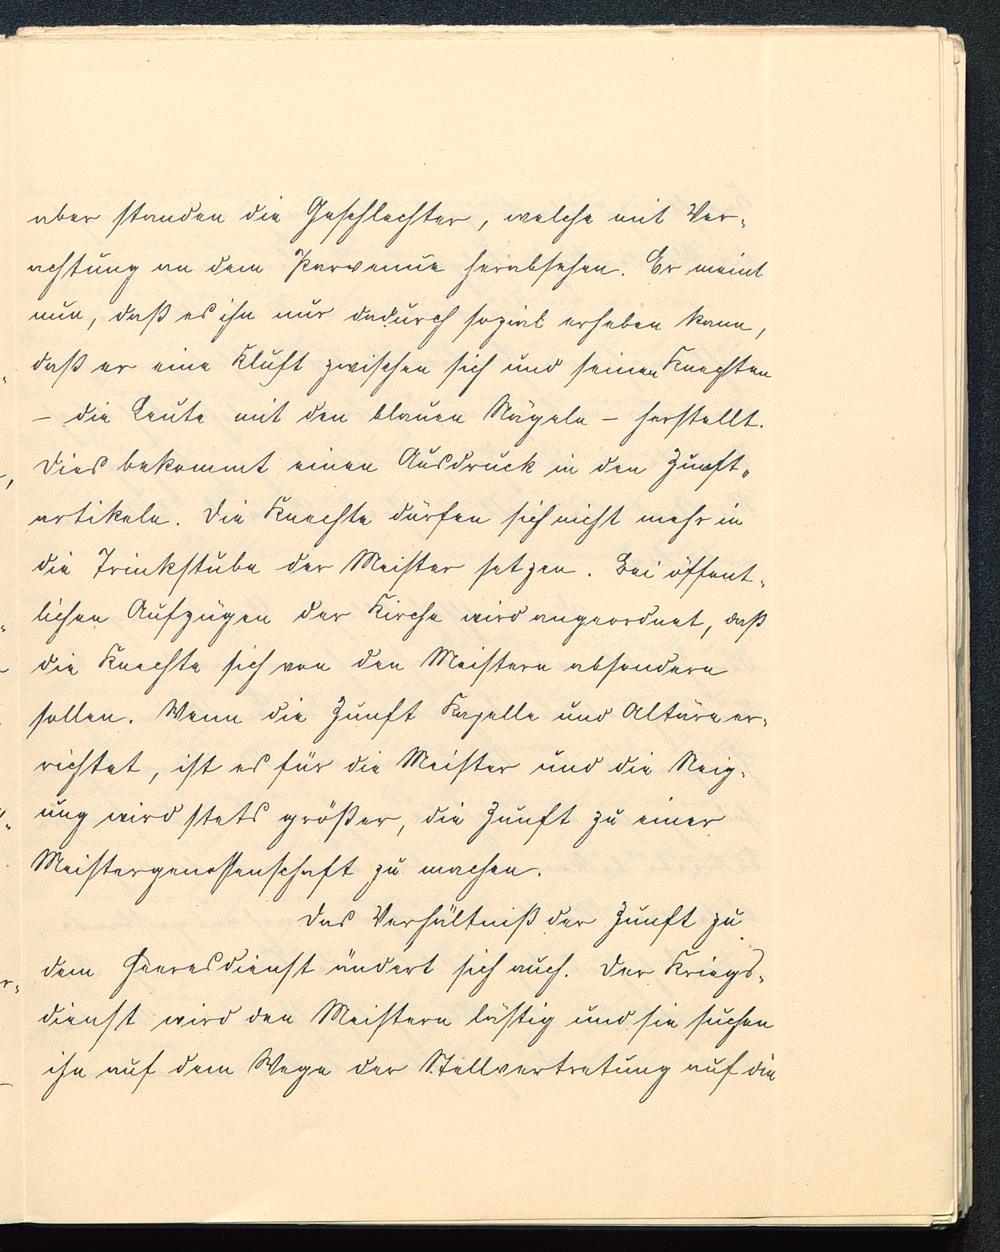 aber standen die Geschlechter, welche mit Ver-
achtung an dem Parvenue herabsehen. Er meint
nun, daß es ihn nur dadurch sozial erheben kann,
daß er eine Kluft zwischen sich und seinen Knechten
– die Leute mit den blauen Nägeln – herstellt.
Dies bekommt einen Ausdruck in den Zunft-
artikeln. Die Knechte dürfen sich nicht mehr in
die Trinkstube der Meister setzen. Bei öffent-
lichen Aufzügen der Kirche wird angeordnet, daß
die Knechte sich von den Meistern absondern
sollen. Wenn die Zunft Kapelle und Altäre er-
richtet, ist es für die Meister und die Neig-
ung wird stets größer, die Zunft zu einer
Meistergenossenschaft zu machen.
Das Verhältniß der Zunft zu
dem Heeresdienst ändert sich auch. Der Kriegs-
dienst wird den Meistern lästig und sie suchen
ihn auf dem Wege der Stellvertretung auf die